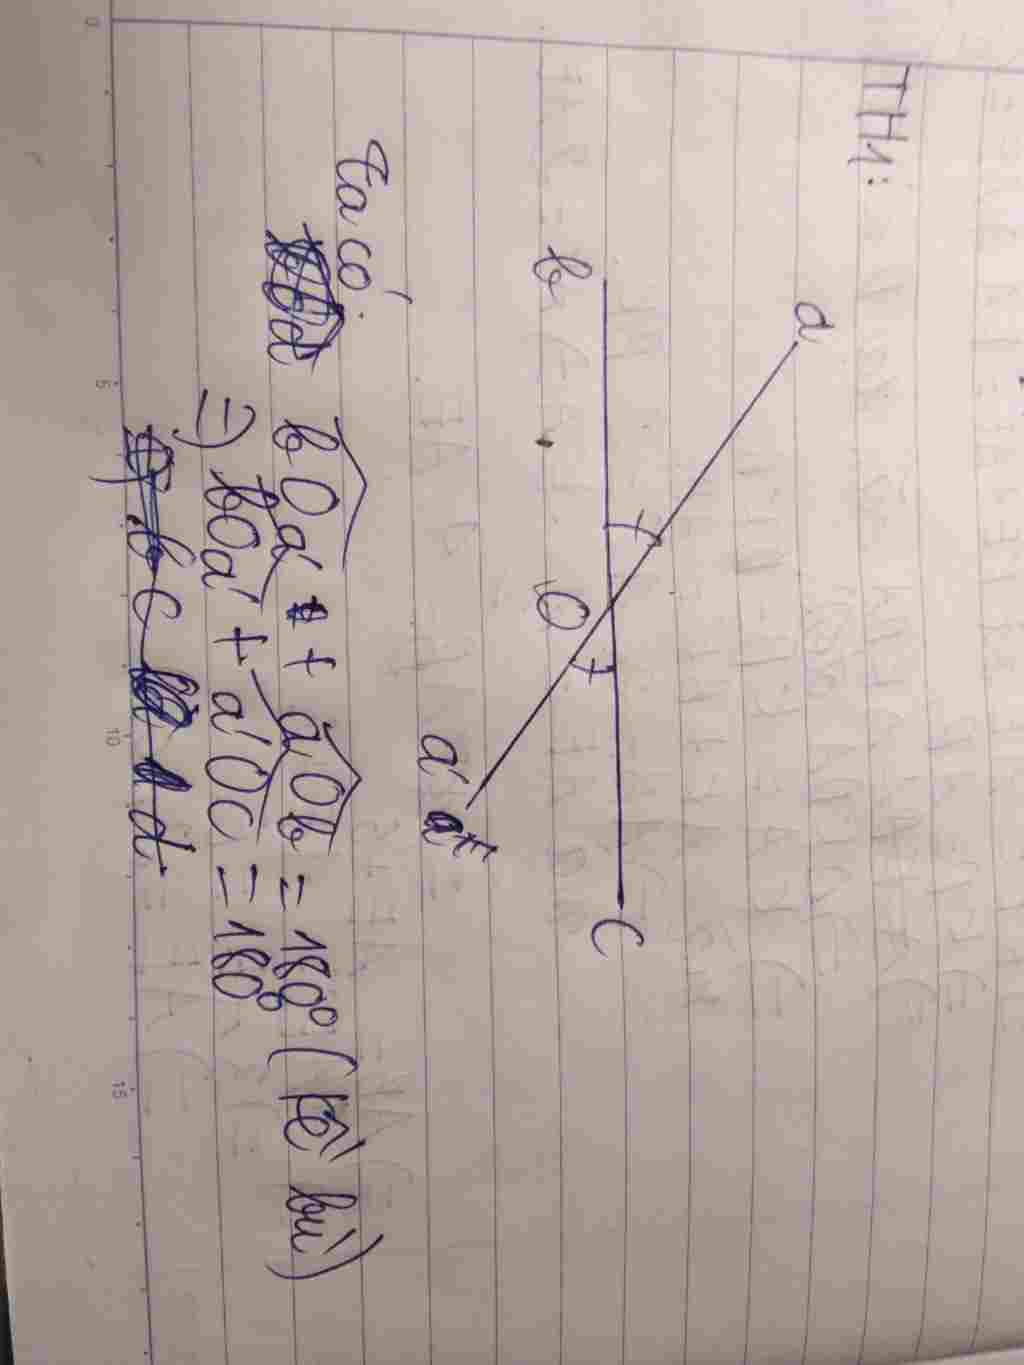 TH1:
a
b
O
C
a'
Ta có:
bOa' + aOb = 180° (kề bù)
=) bOa' + a'OC = 180°